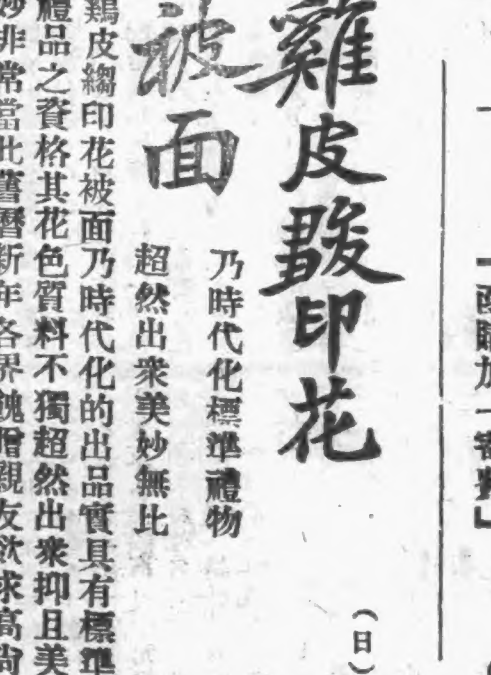 函購加一寄費」
雞皮皺印花
(日)
被面
乃時代化標準禮物
超然出衆美妙無比
鷄皮縐印花被面乃時代化的出品實具有標準
禮品之資格其花色質料不獨超然出衆抑且美
妙非常當此舊曆新年各界餽贈親友欲求高尙